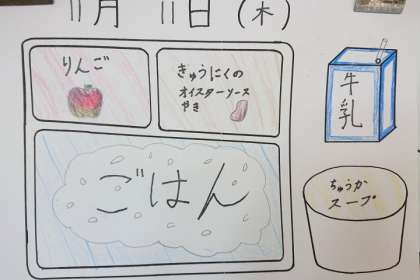 11月 11日(木)
りんご
きゅうにくの
オイスターソース
やき
牛乳
ごはん
ちゅうか
スープ